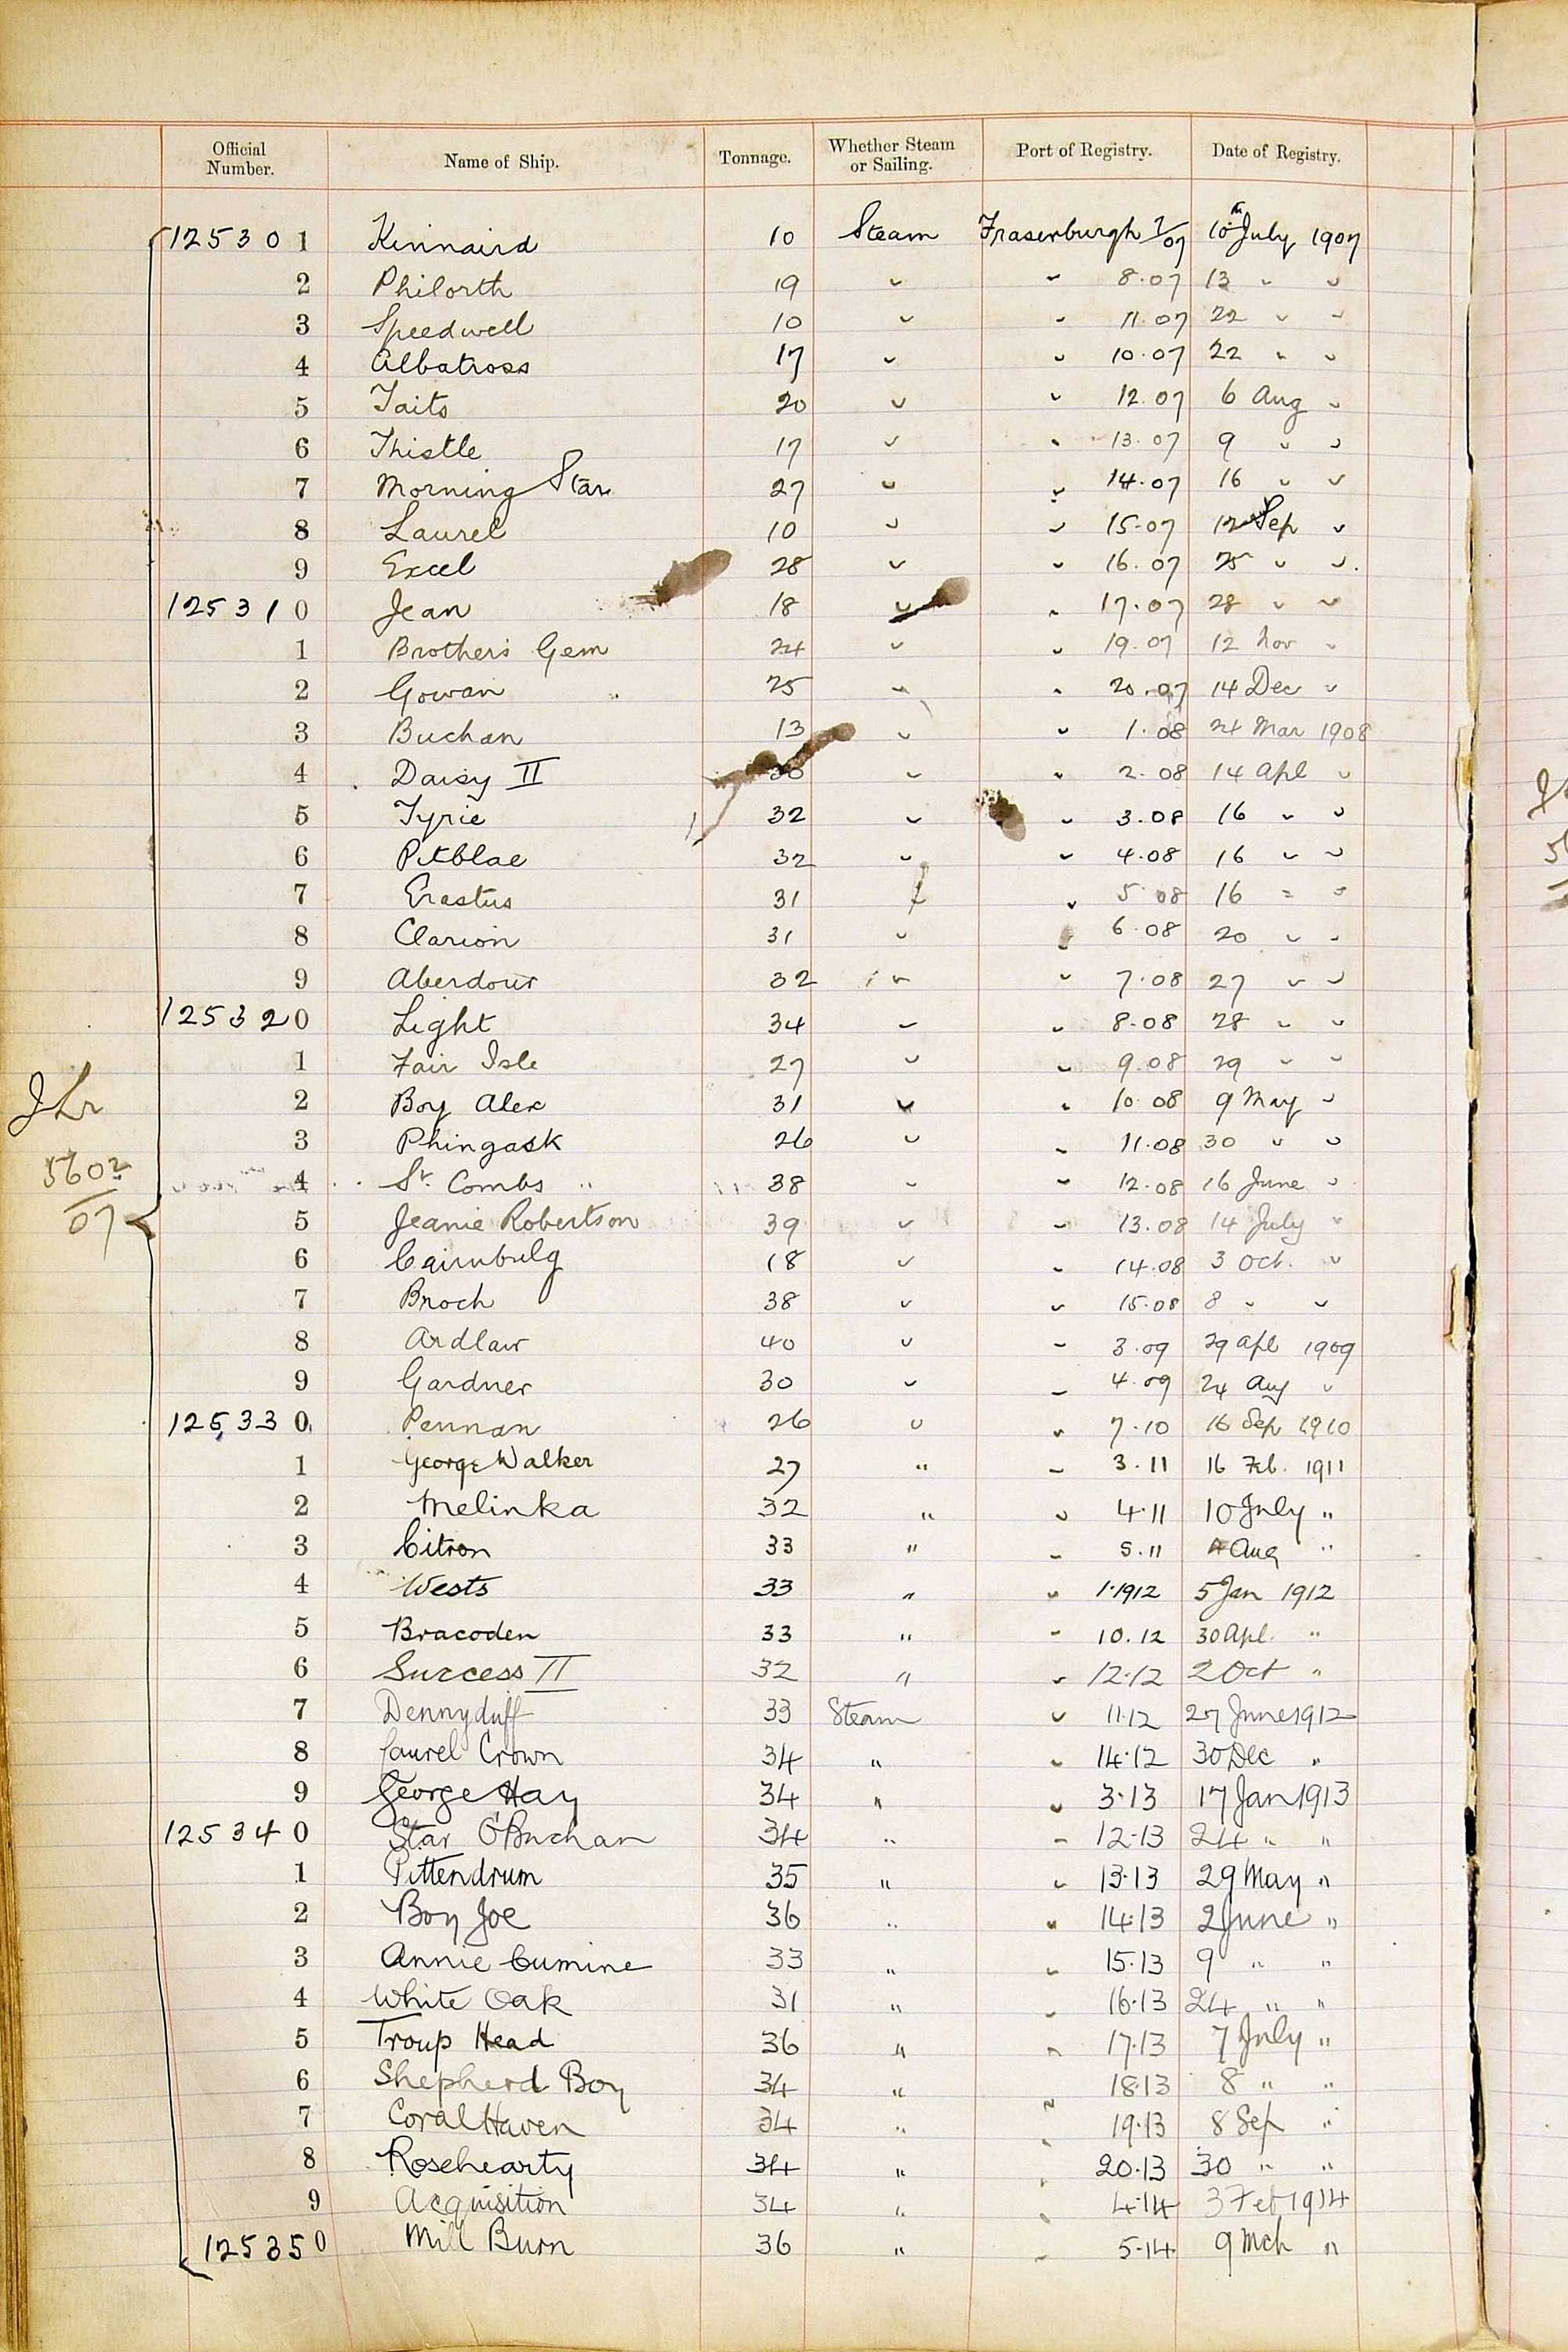 Official Number. Name of Ship. Tonnage. Whether Steam or Sailing. Port of Registry. Date of Registry.
125301 Kinnaird 10 Steam Fraserburgh 7/07 10th July 1907
2 Philorth 19 " " 8.07 13 " "
3 Speedwell 10 " " 11.07 22 " "
4 Albatross 17 " " 10.07 22 " "
5 Taits 20 " " 12.07 6 Aug "
6 Thistle 17 " " 13.07 9 " "
7 Morning Star 27 " " 14.07 16 " "
8 Laurel 10 " " 15.07 12 Sep "
9 Excel 28 " " 16.07 25 " "
125310 Jean 18 " " 17.07 28 " "
1 Brothers Gem 24 " " 19.07 12 Nov "
2 Gowan 25 " " 20.07 14 Dec "
3 Buchan 13 " " 1.08 24 Mar 1908
4 Daisy II " " 2.08 14 Apl "
5 Tyrie 32 " " 3.08 16 " "
6 Pitblae 32 " " 4.08 16 " "
7 Erastus 31 " " 5.08 16 " "
8 Clarion 31 " " 6.08 20 " "
9 Aberdour 32 " " 7.08 27 " "
125320 Light 34 " " 8.08 28 " "
1 Fair Isle 27 " " 9.08 29 " "
2 Boy Alex 31 " " 10.08 9 May "
3 Phingask 26 " " 11.08 30 " "
4 St. Combs 38 " " 12.08 16 June "
5602/07
5 Jeanie Robertson 39 " " 13.08 14 July "
6 Cairnbulg 18 " " 14.08 3 Oct. "
7 Broch 38 " " 15.08 8 " "
8 Ardlaw 40 " " 3.09 29 Apl 1909
9 Gardner 30 " " 4.09 24 Aug "
125330 Pennan 26 " " 7.10 16 Sep 1910
1 George Walker 27 " " 3.11 16 Feb. 1911
2 Melinka 32 " " 4.11 10 July "
3 Citron 33 " " 5.11 4 Aug "
4 Wests 33 " " 1.1912 5 Jan 1912
5 Bracoden 33 " " 10.12 30 Apl. "
6 Success II 32 " " 12.12 2 Oct "
7 Dennyduff 33 Steam " 11.12 27 June 1912
8 Laurel Crown 34 " " 14.12 30 Dec "
9 George Hay 34 " " 3.13 17 Jan 1913
125340 Star O'Buchan 34 " " 12.13 24 " "
1 Pittendrum 35 " " 13.13 29 May "
2 Boy Joe 36 " " 14.13 2 June "
3 Annie Cumine 33 " " 15.13 9 " "
4 White Oak 31 " " 16.13 24 " "
5 Troup Head 36 " " 17.13 7 July "
6 Shepherd Boy 34 " " 18.13 8 " "
7 Coral Haven 34 " " 19.13 8 Sep "
8 Rosehearty 34 " " 20.13 30 " "
9 Acquisition 34 " " 4.14 3 Feb 1914
125350 Mill Burn 36 " " 5.14 9 Mch "